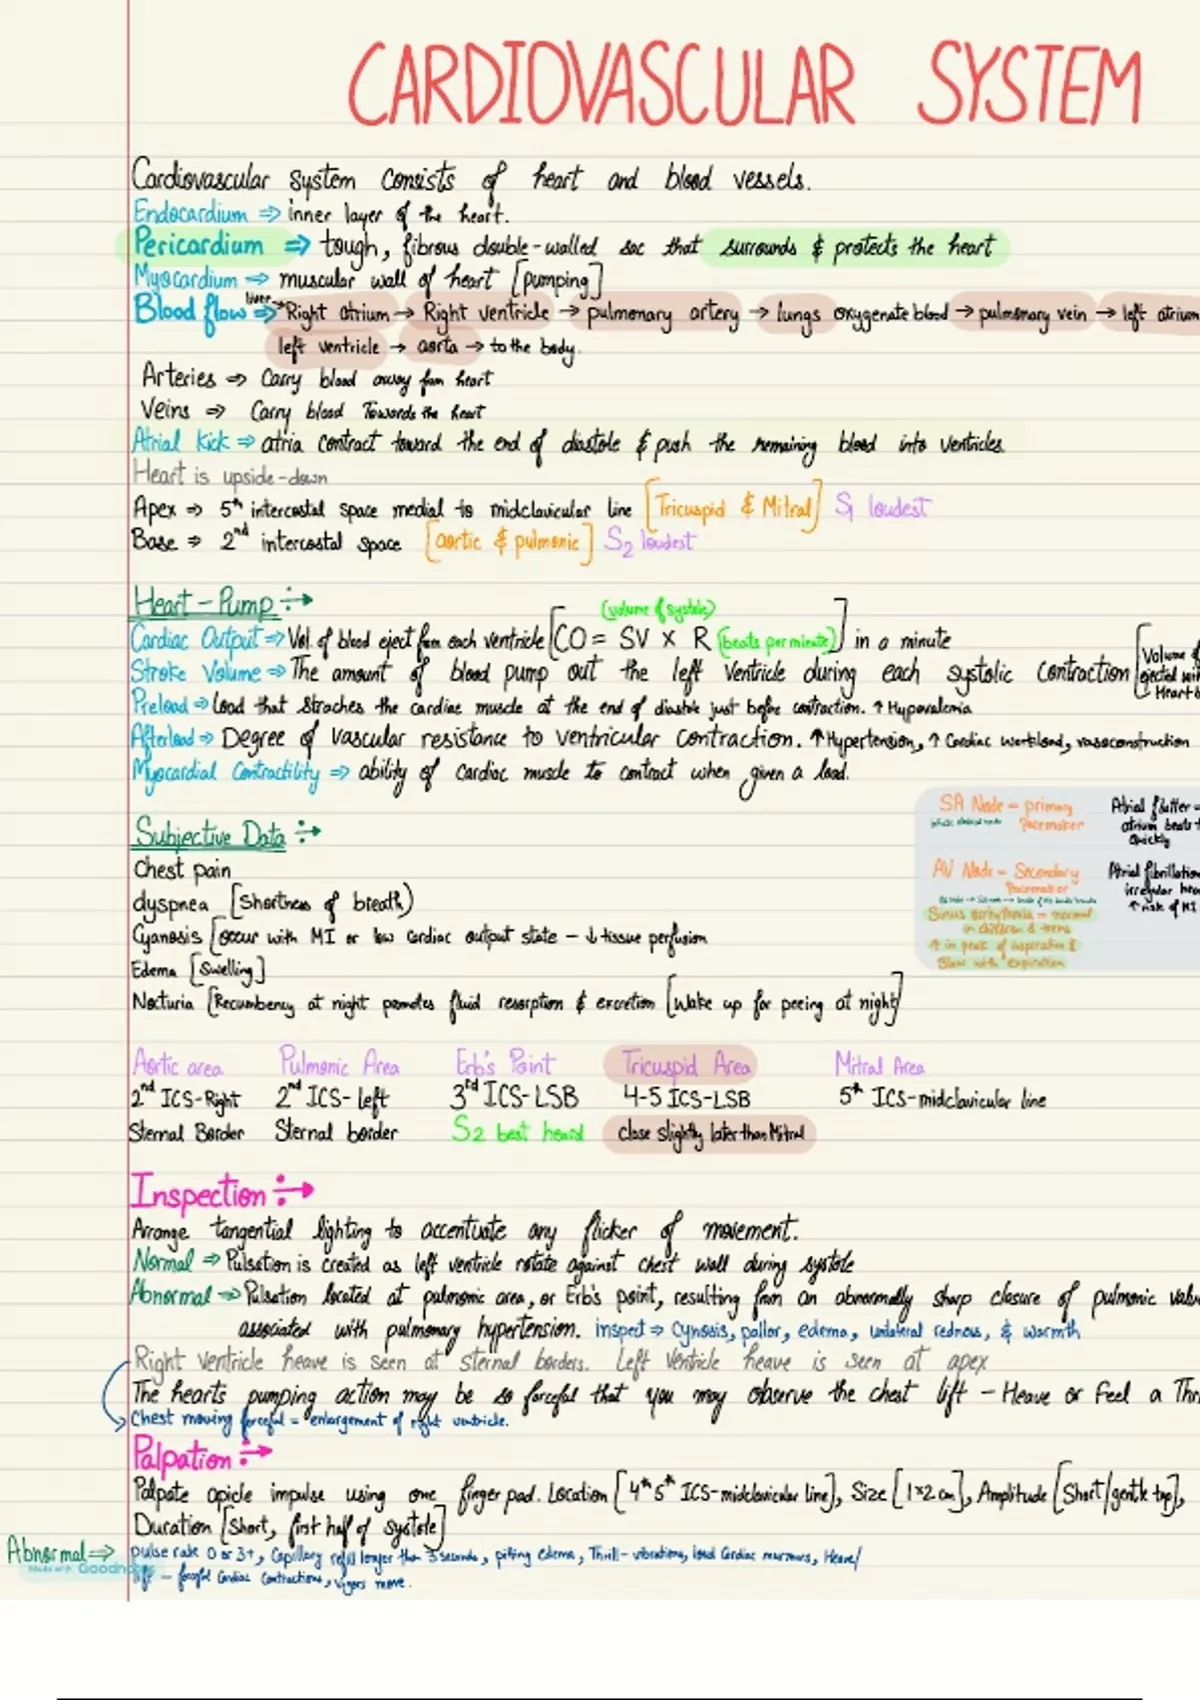 CARDIOVASCULAR SYSTEM
Cardiovascular system consists of heart and blood vessels.
Endocardium ⇒ inner layer of the heart.
Pericardium ⇒ tough, fibrous double-walled sac that surrounds & protects the heart
Myocardium ⇒ muscular wall of heart [pumping]
Blood flow liver ⇒ Right atrium → Right ventricle → pulmonary artery → lungs oxygenate blood → pulmonary vein → left atrium
left ventricle → aorta → to the body.
Arteries ⇒ Carry blood away from heart
Veins ⇒ Carry blood Towards the heart
Atrial kick ⇒ atria contract toward the end of diastole & push the remaining blood into ventricles.
Heart is upside-down
Apex ⇒ 5th intercostal space medial to midclavicular line [Tricuspid & Mitral] S1 loudest
Base ⇒ 2nd intercostal space [aortic & pulmonic] S2 loudest
Heart - Pump ÷→
(volume of systole)
Cardiac Output ⇒ Vol. of blood eject from each ventricle [CO = SV x R (beats per minute)] in a minute
Stroke Volume ⇒ The amount of blood pump out the left Ventricle during each systolic contraction [Volume of
ejected
Heart
Preload ⇒ Load that straches the cardiac muscle at the end of diastole just before contraction. ↑ Hypovalemia
Afterload ⇒ Degree of vascular resistance to ventricular contraction. ↑Hypertension, ↑ Cardiac workload, vasoconstruction
Myocardial Contractility ⇒ ability of cardiac muscle to contract when given a load.
SA Node = primary
Pacemaker
Atrial flutter =
atrium beats
Quickly
AV Node = Secondary
Pacemaker
Atrial fibrillation
irregular
↑ risk of MI
Sinus arrhythmia = normal
in children & teens
↑ in peak of inspiration &
Slow with expiration
Subjective Data ÷→
Chest pain
dyspnea [Shortness of breath)
Cyanosis [occur with MI or low cardiac output state - ↓ tissue perfusion
Edema [Swelling]
Nocturia [Recumbency at night promotes fluid resorption & excretion [Wake up for peeing at night]
Aortic area Pulmonic Area Erb's Point Tricuspid Area Mitral Area
2nd ICS-Right 2nd ICS-Left 3rd ICS-LSB 4-5 ICS-LSB 5th ICS-midclavicular line
Sternal Border Sternal border S2 best heard close slightly later than Mitral
Inspection ÷→
Arrange tangential lighting to accentuate any flicker of movement.
Normal ⇒ Pulsation is created as left ventricle rotate against chest wall during systole
Abnormal ⇒ Pulsation located at pulmonic area, or Erb's point, resulting from an abnormally sharp closure of pulmonic
associated with pulmonary hypertension. inspect ⇒ Cynosis, pallor, edema, unilateral redness, & warmth
Right ventricle heave is seen at sternal borders. Left ventricle heave is seen at apex
The hearts pumping action may be so forceful that you may observe the chest lift - Heave or Feel a
Chest moving forceful = enlargement of right ventricle.
Palpation ÷→
Palpate apicle impulse using one finger pad. Location [4th 5th ICS-midclavicular line], Size [1x2 cm], Amplitude [Short/gentle tap],
Duration [Short, first half of systole]
Abnormal ⇒ pulse rate 0 or 3+, Capillary refill longer than 3 seconds, pitting edema, Thrill-vibrations, loud Cardiac murmurs, Heave/
lift - forceful Cardiac Contractions, vigors move.
Made with Goodnotes